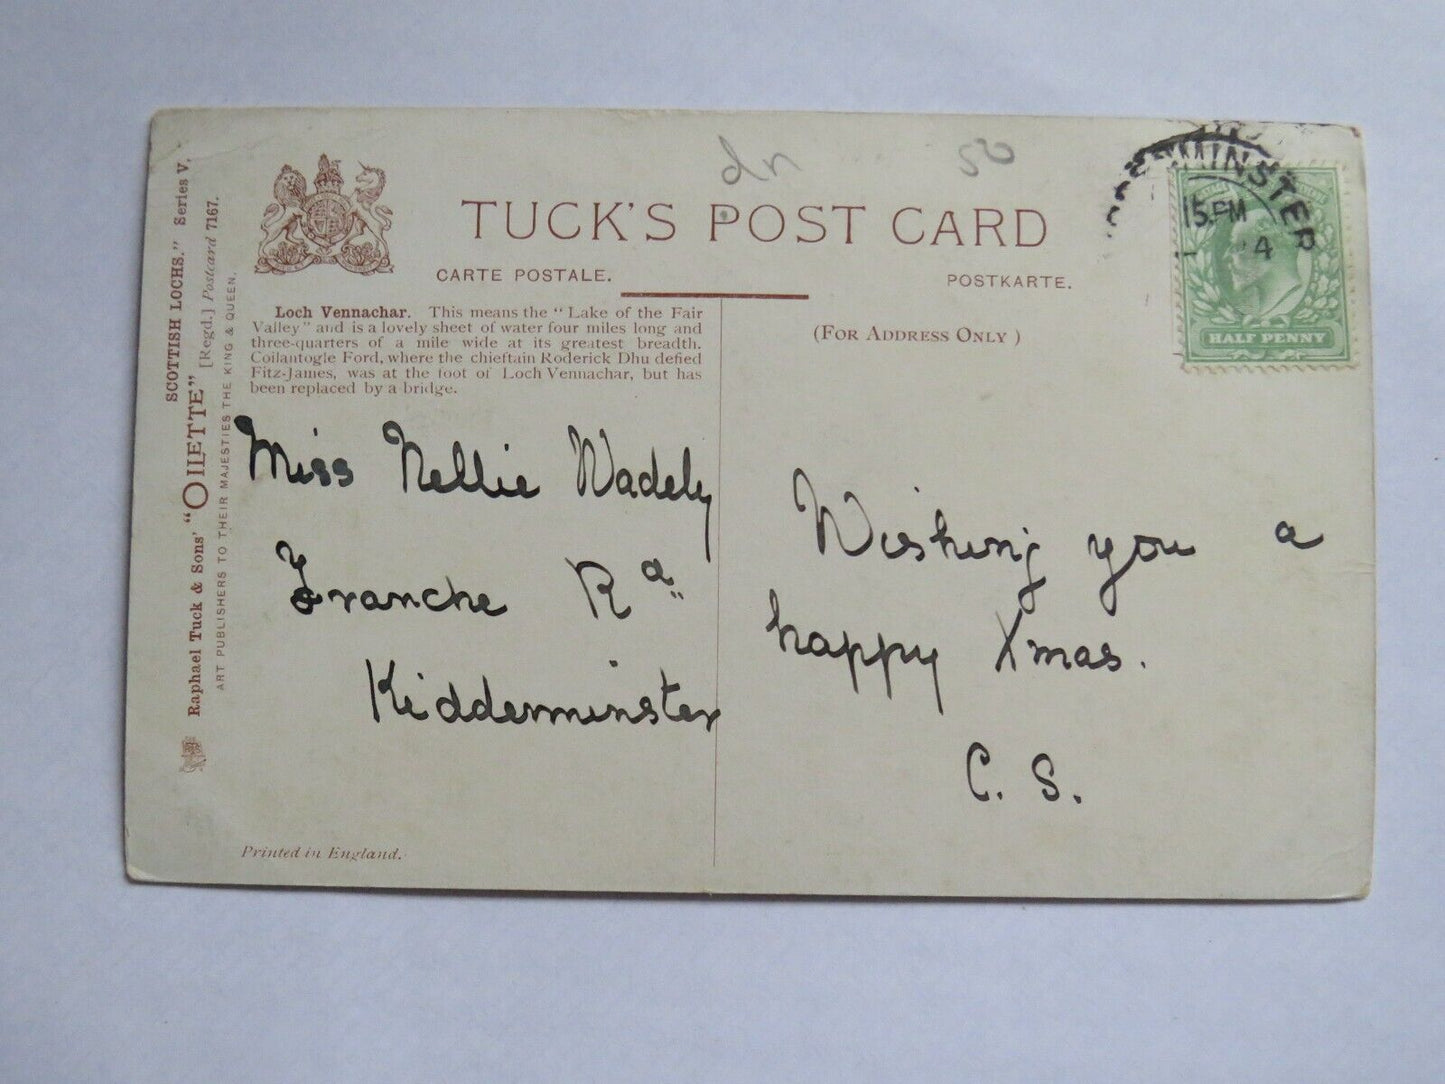 TUCK'S POST CARD
CARTE POSTALE.
POSTKARTE.
dn
50
MINSTER
15.PM
4
HALF PENNY
SCOTTISH LOCHS." Series V.
Raphael Tuck & Sons' "OILETTE" [Regd.] Postcard 7167.
ART PUBLISHERS TO THEIR MAJESTIES THE KING & QUEEN.
Loch Vennachar. This means the "Lake of the Fair
Valley" and is a lovely sheet of water four miles long and
three-quarters of a mile wide at its greatest breadth.
Coilantogle Ford, where the chieftain Roderick Dhu defied
Fitz-James, was at the foot of Loch Vennachar, but has
been replaced by a bridge.
(FOR ADDRESS ONLY)
Miss Nellie Wadely
Franche Rd
Kidderminster
Wishing you a
happy Xmas.
C. S.
Printed in England.